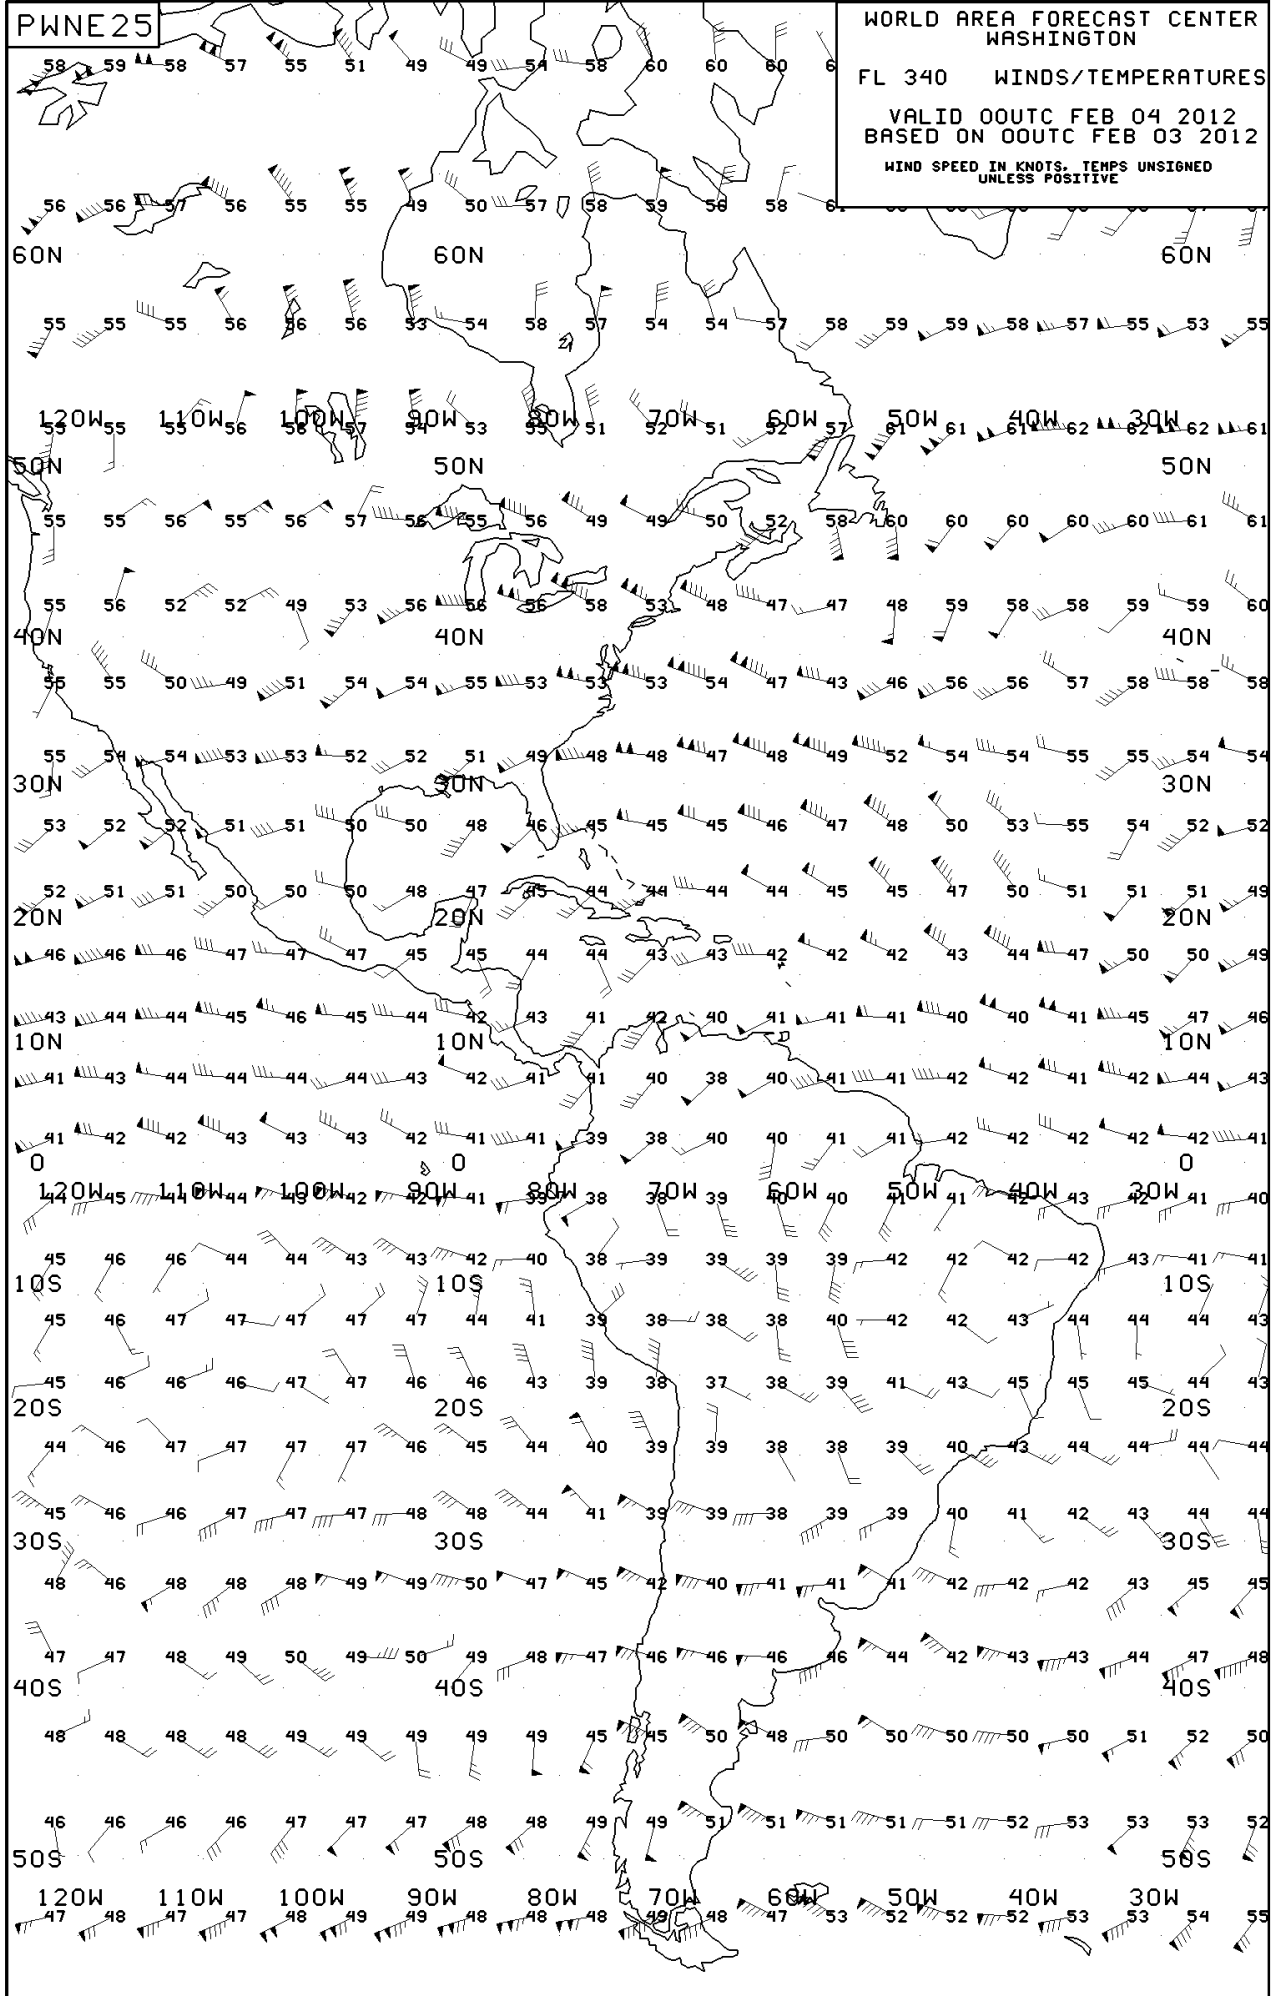 PWNE25
WORLD AREA FORECAST CENTER
WASHINGTON
FL 340 WINDS/TEMPERATURES
VALID 00UTC FEB 04 2012
BASED ON 00UTC FEB 03 2012
WIND SPEED IN KNOTS, TEMPS UNSIGNED
UNLESS POSITIVE
58 59 58 57 55 51 49 49 54 58 60 60 60
56 56 57 56 55 55 49 50 57 58 59 56 58
60N 60N 60N
55 55 55 56 56 56 53 54 58 57 54 54 57 58 59 59 58 57 55 53 55
120W 110W 100W 90W 80W 70W 60W 50W 40W 30W
55 55 55 56 56 57 54 53 55 51 52 51 52 57 61 61 61 62 62 62 61
50N 50N 50N
55 55 56 55 56 57 56 55 56 49 49 50 52 58 60 60 60 60 60 61 61
55 56 52 52 49 53 56 56 56 58 53 48 47 47 48 59 58 58 59 59 60
40N 40N 40N
55 55 50 49 51 54 54 55 53 53 53 54 47 43 46 56 56 57 58 58 58
55 54 54 53 53 52 52 51 49 48 48 47 48 49 52 54 54 55 55 54 54
30N 30N 30N
53 52 52 51 51 50 50 48 46 45 45 45 46 47 48 50 53 55 54 52 52
52 51 51 50 50 50 48 47 45 44 44 44 44 45 45 47 50 51 51 51 49
20N 20N 20N
46 46 46 47 47 47 45 45 44 44 43 43 42 42 42 43 44 47 50 50 49
43 44 44 45 46 45 44 42 43 41 42 40 41 41 41 40 40 41 45 47 46
10N 10N 10N
41 43 44 44 44 44 43 42 41 41 40 38 40 41 41 42 42 41 42 44 43
41 42 42 43 43 43 42 41 41 39 38 40 40 41 41 42 42 42 42 42 41
0 0 0
120W 110W 100W 90W 80W 70W 60W 50W 40W 30W
44 45 41 44 43 42 42 41 39 38 38 39 40 40 41 41 42 43 42 41 40
45 46 46 44 44 43 43 42 40 38 39 39 39 39 42 42 42 42 43 41 41
10S 10S 10S
45 46 47 47 47 47 47 44 41 39 38 38 38 40 42 42 43 44 44 44 43
45 46 46 46 47 47 46 46 43 39 38 37 38 39 41 43 45 45 45 44 43
20S 20S 20S
44 46 47 47 47 47 46 45 44 40 39 39 38 38 39 40 43 44 44 44 44
45 46 46 47 47 47 48 48 44 41 39 39 38 39 39 40 41 42 43 44 44
30S 30S 30S
48 46 48 48 48 49 49 50 47 45 42 40 41 41 41 42 42 42 43 45 45
47 47 48 49 50 49 50 49 48 47 46 46 46 46 44 42 43 43 44 47 48
40S 40S 40S
48 48 48 48 49 49 49 49 49 45 45 50 48 50 50 50 50 50 51 52 50
46 46 46 46 47 47 47 48 48 49 49 51 51 51 51 51 52 53 53 53 52
50S 50S 50S
120W 110W 100W 90W 80W 70W 60W 50W 40W 30W
47 48 47 47 48 49 49 48 48 48 49 48 47 53 52 52 52 53 53 54 55